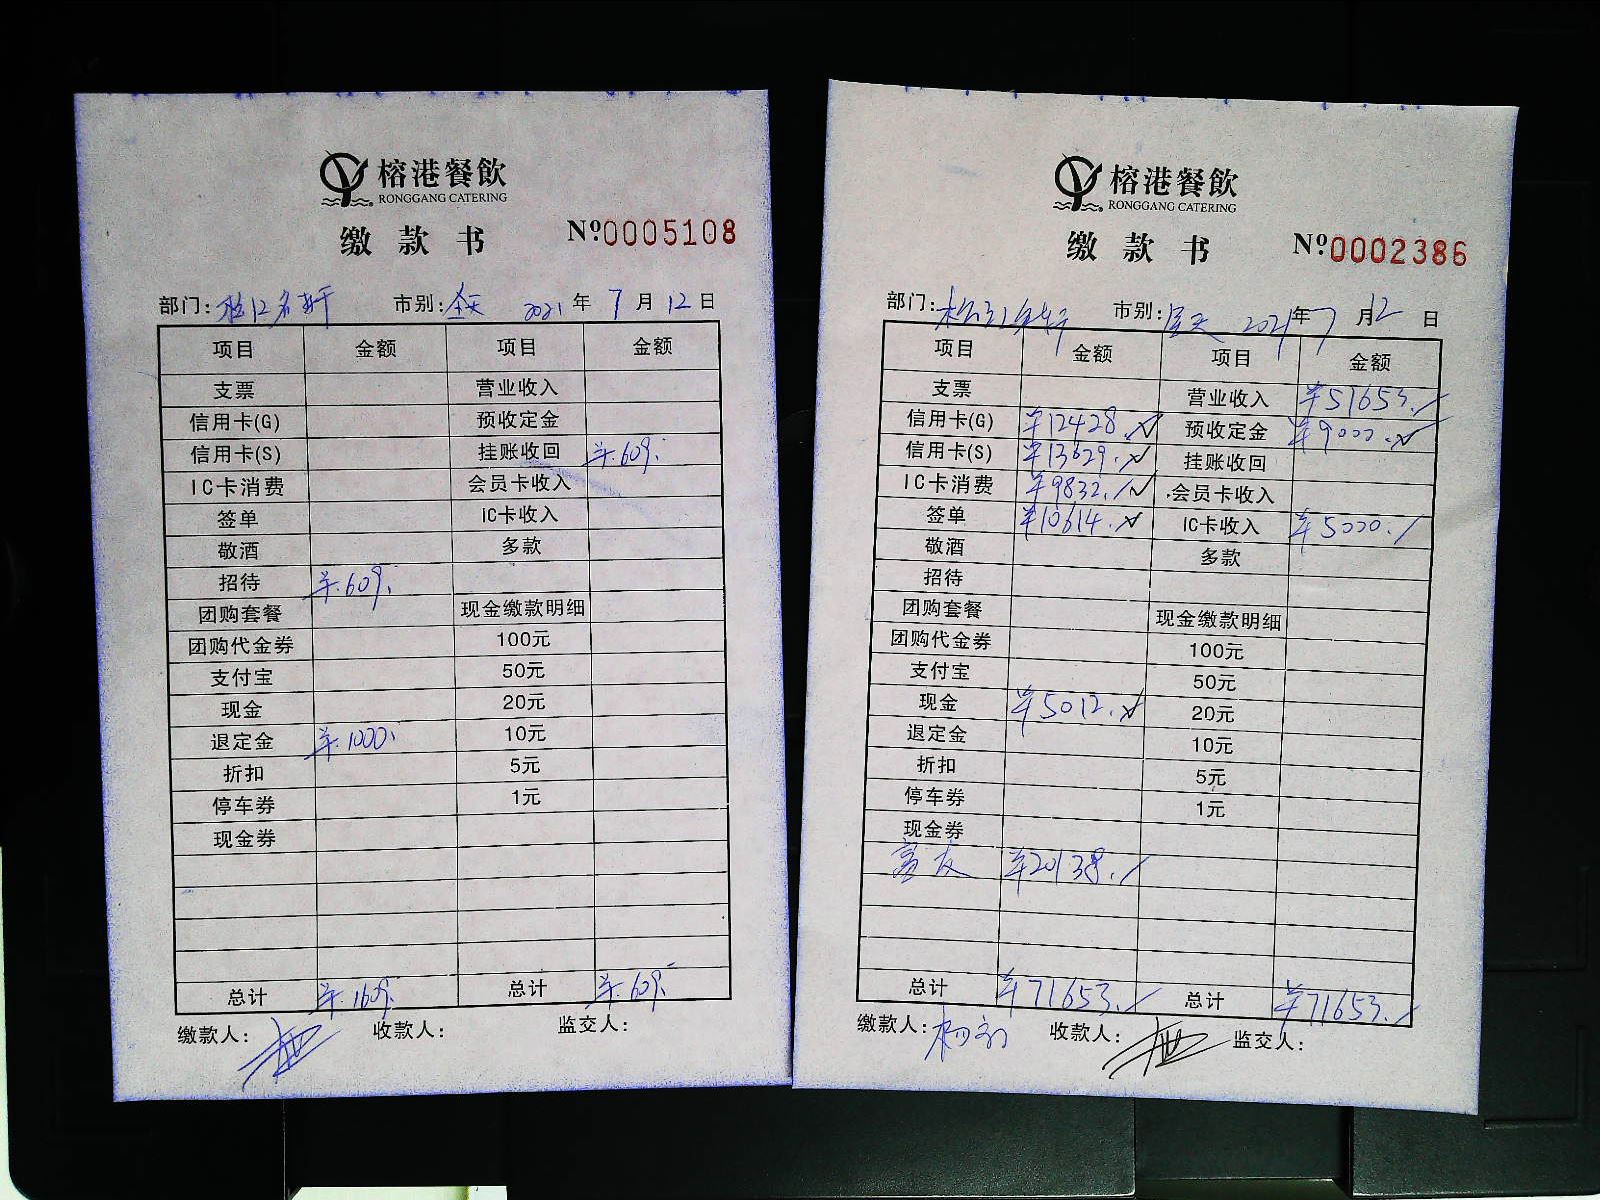 榕港餐飲
RONGGANG CATERING
缴款书
Nº0005108
部门: 市别:全天 2021年7月12日
项目 金额 项目 金额
支票 营业收入
信用卡(G) 预收定金
信用卡(S) 挂账收回 ¥609.
IC卡消费 会员卡收入
签单 IC卡收入
敬酒 多款
招待 ¥609.
团购套餐 现金缴款明细
团购代金券 100元
支付宝 50元
现金 20元
退定金 ¥1000. 10元
折扣 5元
停车券 1元
现金券
总计 ¥1609. 总计 ¥609.
缴款人: 收款人: 监交人:
榕港餐飲
RONGGANG CATERING
缴款书
Nº0002386
部门: 市别: 2021年7月12日
项目 金额 项目 金额
支票 营业收入 ¥57653.
信用卡(G) ¥12428. 预收定金 ¥9000.
信用卡(S) ¥13629. 挂账收回
IC卡消费 ¥9832. 会员卡收入
签单 ¥10614. IC卡收入 ¥5000.
敬酒 多款
招待
团购套餐 现金缴款明细
团购代金券 100元
支付宝 50元
现金 ¥5012. 20元
退定金 10元
折扣 5元
停车券 1元
现金券
¥20138.
总计 ¥71653. 总计 ¥71653.
缴款人: 收款人: 监交人: